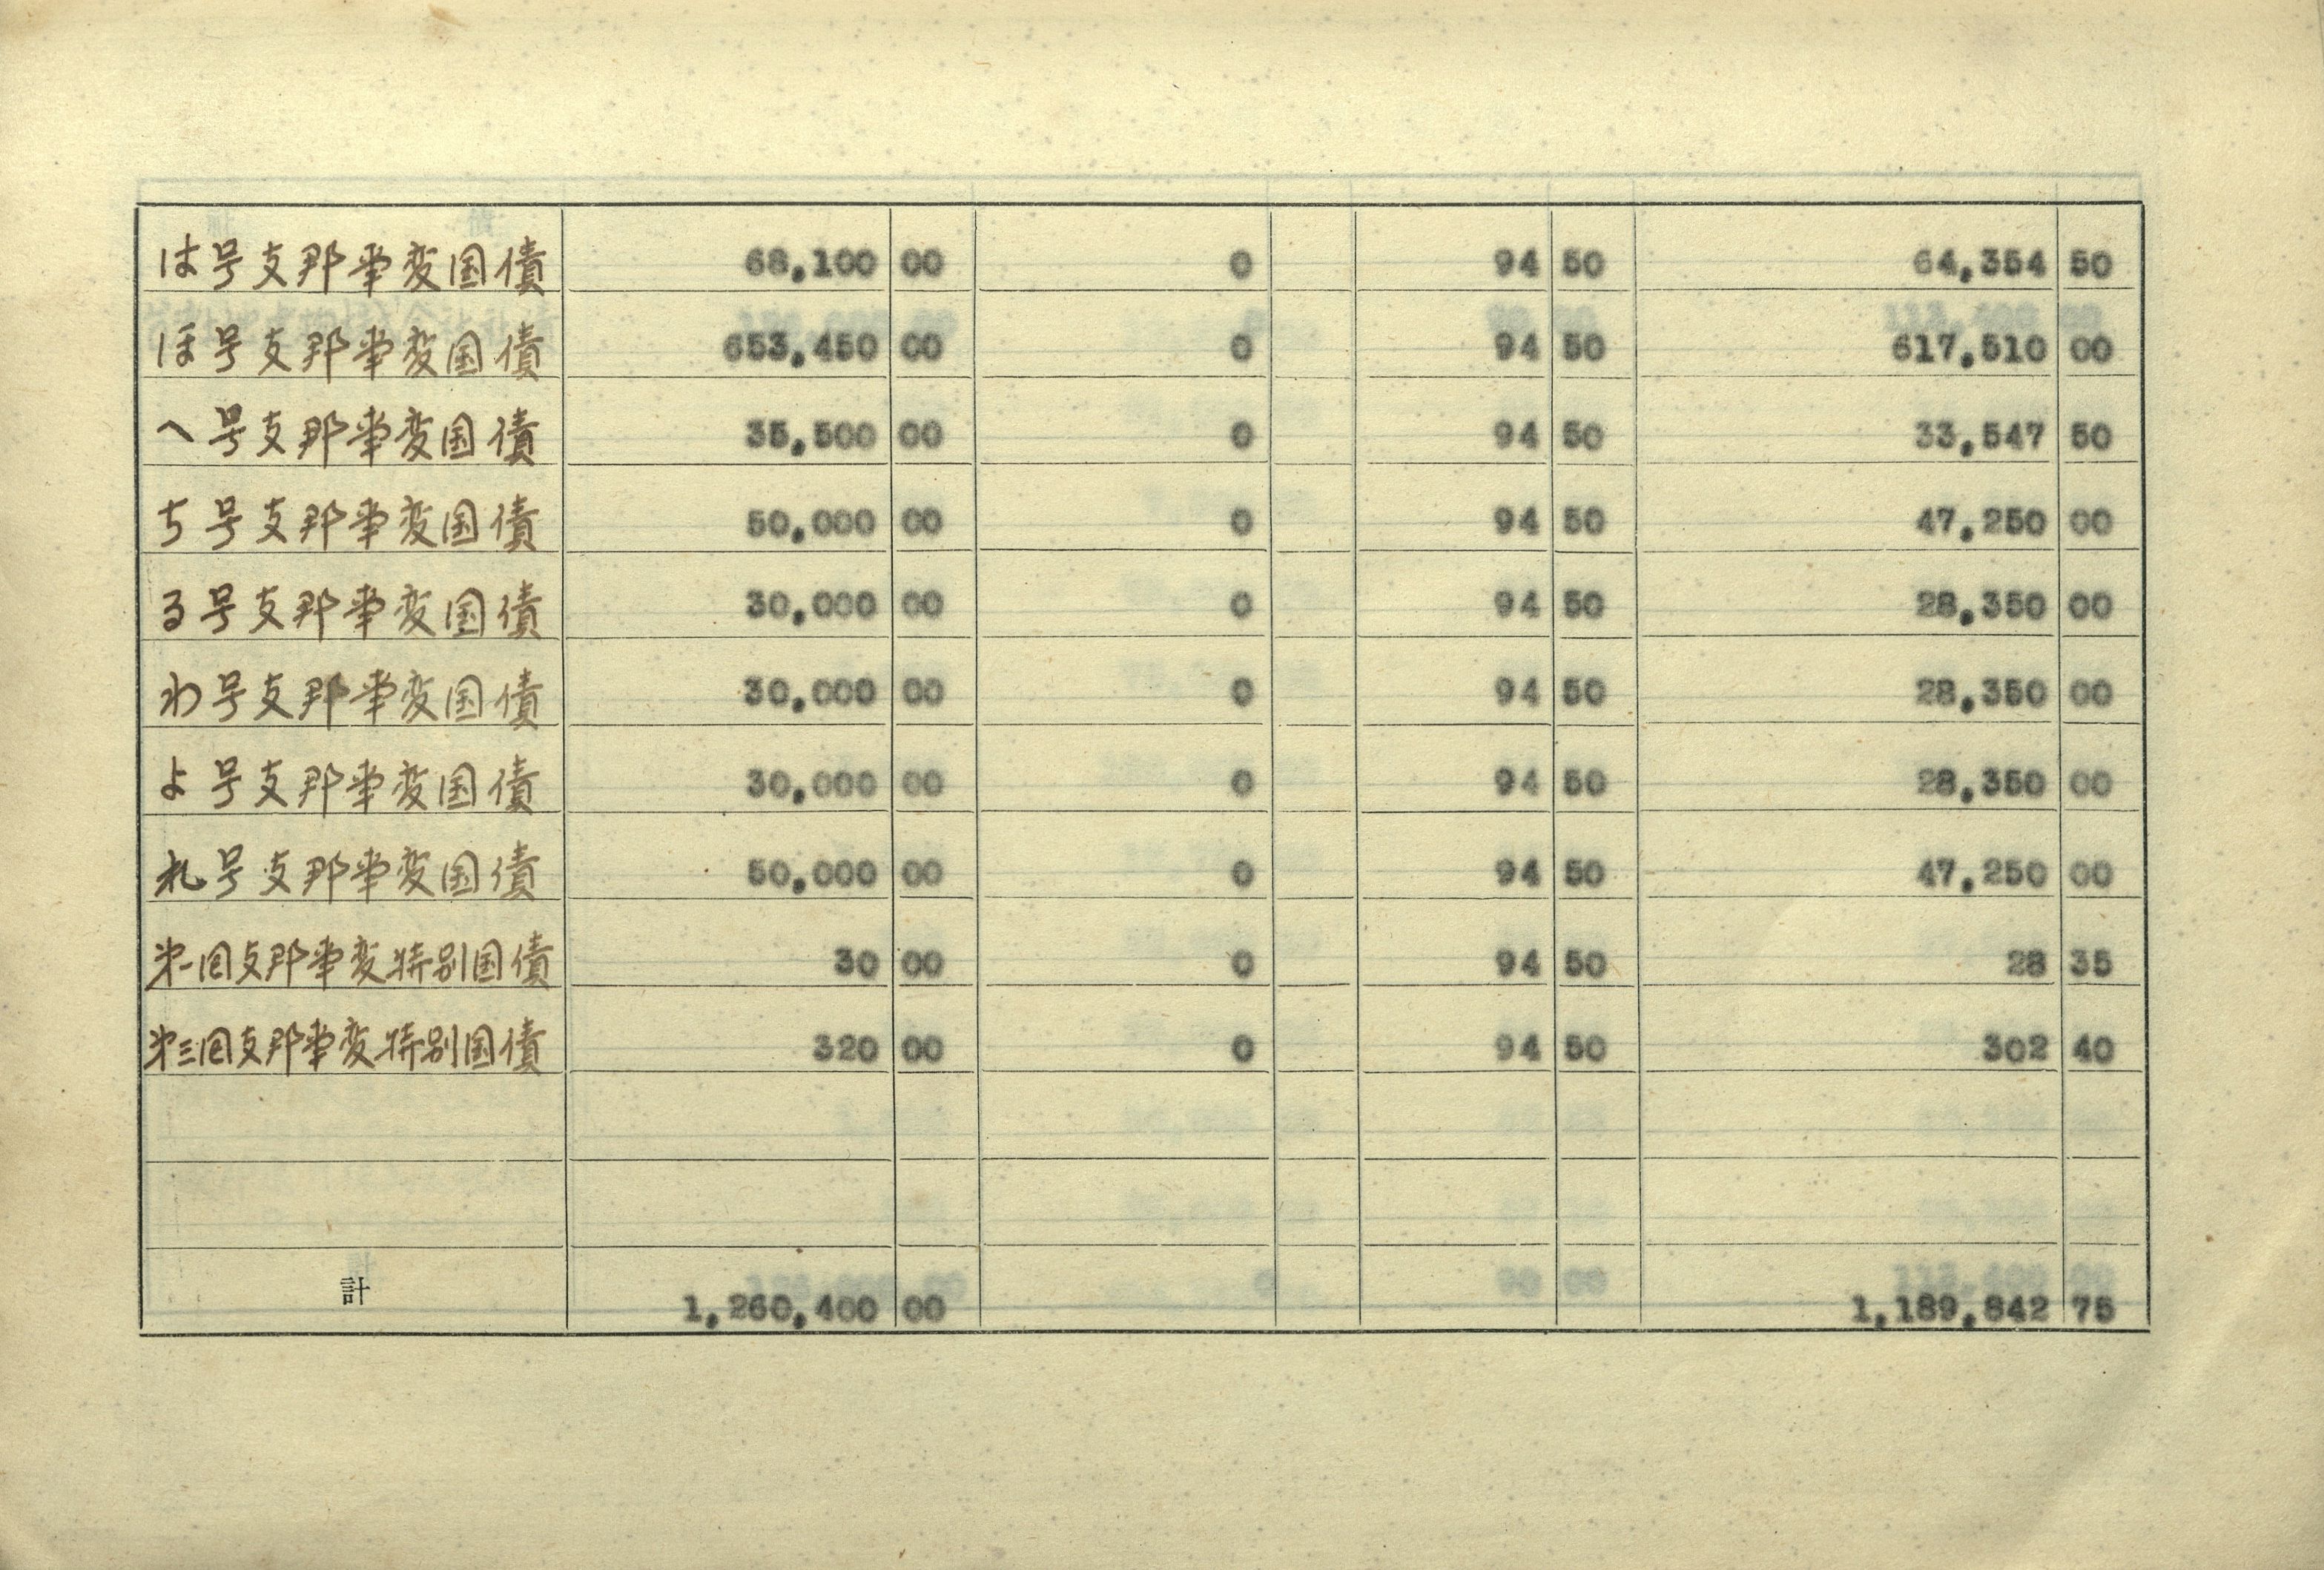 は号支那事変国債 68,100 00 0 94 50 64,354 50
ほ号支那事変国債 653,450 00 0 94 50 617,510 00
へ号支那事変国債 35,500 00 0 94 50 33,547 50
ち号支那事変国債 50,000 00 0 94 50 47,250 00
る号支那事変国債 30,000 00 0 94 50 28,350 00
わ号支那事変国債 30,000 00 0 94 50 28,350 00
よ号支那事変国債 30,000 00 0 94 50 28,350 00
れ号支那事変国債 50,000 00 0 94 50 47,250 00
第一回支那事変特別国債 30 00 0 94 50 28 35
第三回支那事変特別国債 320 00 0 94 50 302 40
計 1,260,400 00 1,189,842 75